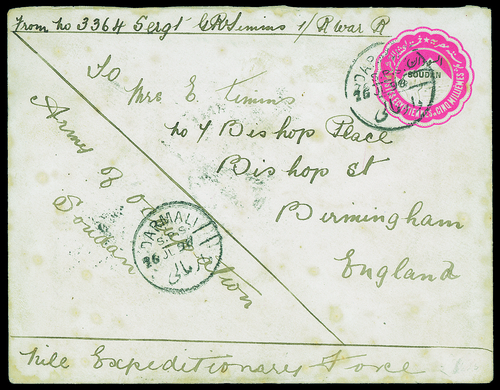 From No 3364 Sergt C R Timins 1/R War R
To
Mrs E Timins
No 4 Bishop Place
Bishop St
Birmingham
England
Army of Occupation
Soudan
Nile Expeditionary Force
SOUDAN
CINQ MILLIEMES
DARMALI
26 JL 98